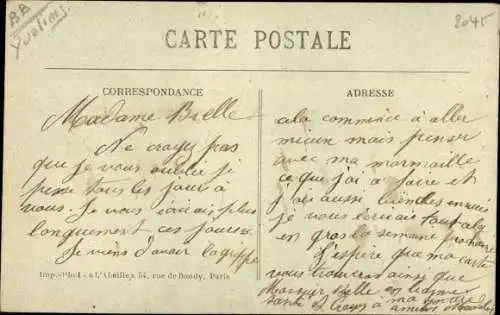 BB
Yvelines
2045
CARTE POSTALE
CORRESPONDANCE
Madame Bielle
Ne croyez pas
que je vous oublie si
pense tous les jours à
vous. Je vous écrirais plus
longuement ces jours
Je viens d'avoir la grippe
Imp.-Phot. L'Abeille, 54, rue de Bondy, Paris
ADRESSE
cela commence à aller
mieux mais penser
avec ma marmaille
ce que j'ai à faire et
j'ai aussi
je vous écrirais
en gros la semaine
J'espère que ma carte
vous trouvera ainsi que
Monsieur Bielle en bonne
santé et à ma